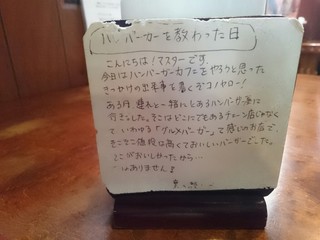 ハンバーガーを教わった日
こんにちは!マスターです。
今日はハンバーガーカフェをやろうと思った
きっかけの出来事を書くぞコノヤロー!
ある日 連れと一緒にとあるハンバーガー屋に
行きました。そこはどこにでもあるチェーン店じゃなく
て いわゆる「グルメバーガー」て感じのお店で、
そこそこ値段は高くておいしいバーガーでした。
ここがおいしかったから…
…ではありません!